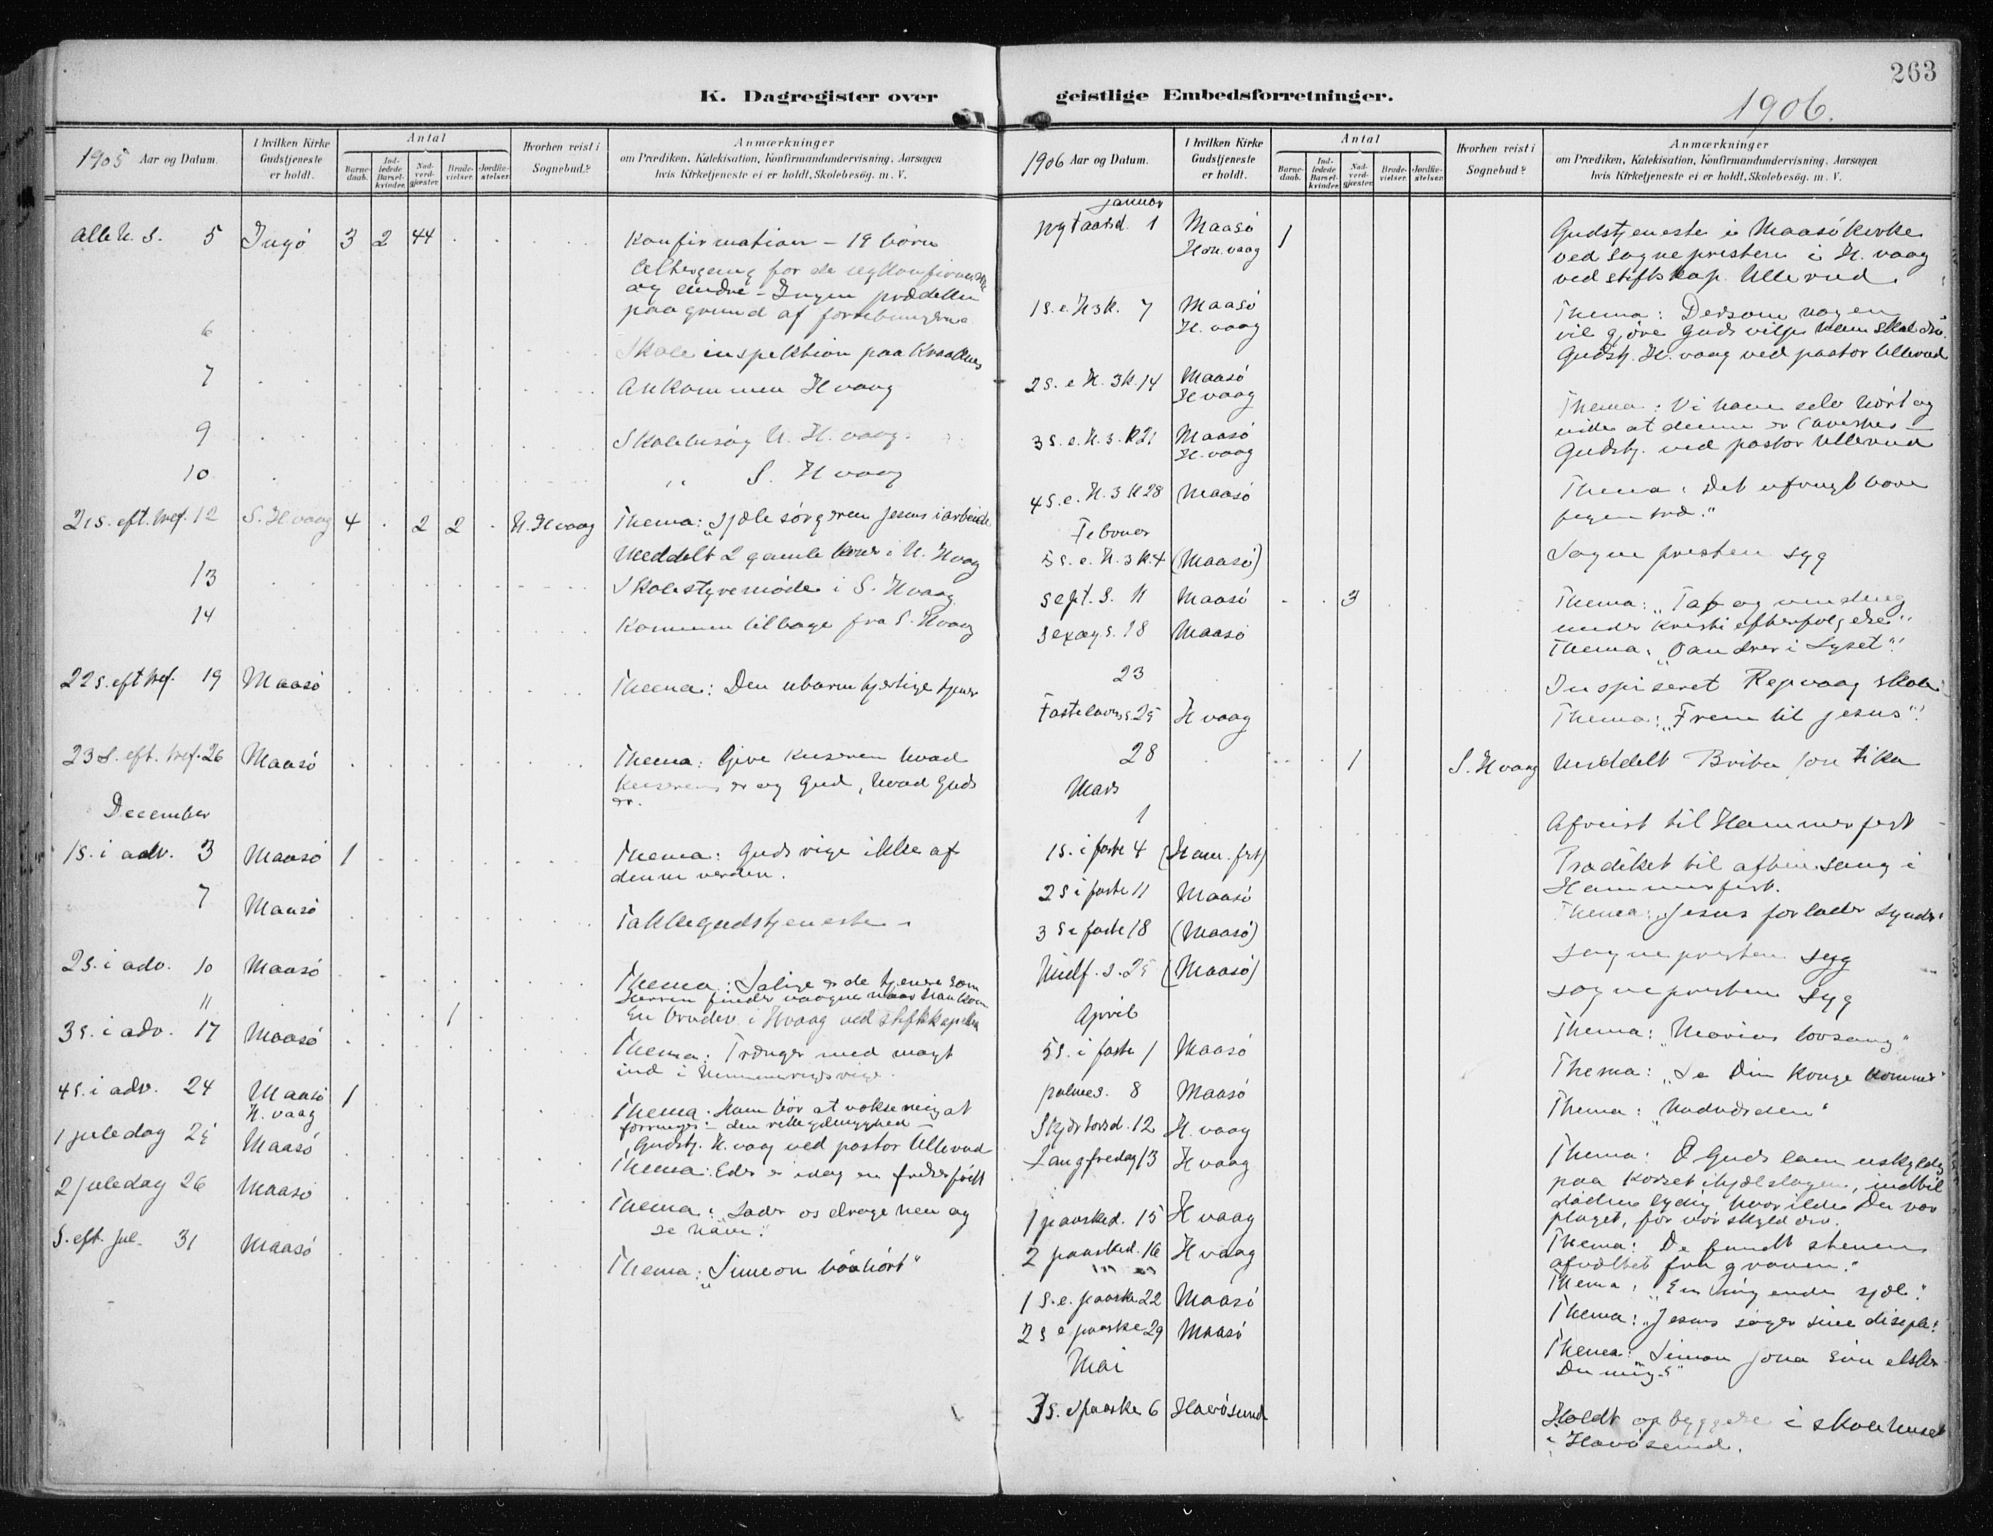 263
K. Dagregister over
geistlige Embedsforretninger.
1906.
1905 Aar og Datum.
I hvilken Kirke Gudstjeneste er holdt.
Antal
Barnedaab.
Indledede Barselkvinder.
Nadverdgjester
Brudevielser.
Jordfæstelser.
Hvorhen reist i Sognebud?
Anmærkninger
om Prædiken, Katekisation, Konfirmandundervisning, Aarsagen
hvis Kirketjeneste ei er holdt, Skolebesøg. m. V.
Alle H. S. 5 Ingö 3 2 44 Konfirmation – 19 börn
Altergang for de
og andre – Ingen
paa grund af
6 Skoleinspektion paa
7 Ankommen Hvaag
9 Skolebesög N. H. vaag.
10 " S. Hvaag
21 s. eft. tref. 12 S. Hvaag 4 2 2 N. Hvaag Thema: "Sjælesörgeren Jesus i arbeide
Meddelt 2 gamle koner i N. Hvaag
13 Skolestyremöde i S. Hvaag
14 Kommen tilbage fra S. Hvaag
22 s. eft tref. 19 Maasö Thema: Den ubarmhjertige tjener
23 s. eft. tref. 26 Maasö Thema: Give keiseren hvad
keiserens er og Gud, hvad Guds
er.
December
1 s. i adv. 3 Maasö 1 Thema: Guds rige ikke af
denne verden.
7 Maasö Takkegudstjeneste –
2 s. i adv. 10 Maasö Thema: Salige er de tjenere som
Herren finder vaagne naar han kom
11 1 En brudev. i Hvaag ved stiftskapelan
3 s. i adv. 17 Maasö Thema: Trænger med magt
ind i himmeriges rige.
4 s. i adv. 24 Maasö 1 Thema: Ham bör at vokse mig at
H. vaag forringes – den rette ydmyghed –
Gudstj. H. vaag ved pastor Ullerud
1 juledag 25 Maasö Thema: Eder er idag en frelser födt
2 juledag 26 Maasö Thema: Lader os drage hen og
se ham!
S. eft. jul. 31 Maasö Thema: "Simeon bönhört"
1906 Aar og Datum.
I hvilken Kirke Gudstjeneste er holdt.
Antal
Barnedaab.
Indledede Barselkvinder.
Nadverdgjester
Brudevielser.
Jordfæstelser
Hvorhen reist i Sognebud?
Anmærkninger
om Prædiken, Katekisation, Konfirmandundervisning, Aarsagen
hvis Kirketjeneste ei er holdt, Skolebesøg. m. V.
Januar
nytaarsd. 1 Maasö 1 Gudstjeneste i Maasö kirke
Hon. vaag ved sognepresten i H. vaag
ved stiftskap. Ullerud.
1 s. e. H 3 k. 7 Maasö Thema: Dersom nogen
H. vaag vil gjöre Guds vilje
Gudstj. H. vaag ved pastor Ullerud
2 s. e H. 3 k. 14 Maasö
Hvaag Thema: Vi have selv hört og
vide at denne er
3 s. e. H. 3. k 21 Maasö Gudstj. ved pastor Ullerud
H. vaag
4 s. e. H. 3 k 28 (Maasö Thema: Det ufrugtbare
figentræ."
Februar
5 s. e. H. 3 k. 4 (Maasö) Sognepresten syg
Sept. S. 11 Maasö 3 Thema: "Tab og vinding
under Kristi efterfölgelse"
Sexag s. 18 Maasö Thema: "Vandrer i Lyset"
23 Inspiseret Repvaag skole
Fastelavns s 25 H vaag Thema: "Frem til Jesus"
28 1 S. Hvaag Meddelt
Mars
1 Afreist til Hammerfest
1 s. i faste 4 (Ham. fest) Prædiket til aftensang i
Hammerfest.
2 s i faste 11 Maasö Thema: "Jesus forlader synder"
3 s i faste 18 (Maasö) Sognepresten syg
Midf. s. 25 (Maasö) Sognepresten syg
April
5 s. i faste 1 Maasö Thema: "Marias lovsang"
palmes. 8 Maasö Thema: "Se Din konge kommer"
Skjærtorsd. 12 H. vaag Thema: "Nadverden"
Langfredag 13 H vaag Thema: O Guds lam uskyldig
paa korset ihjelslagen, indtil
döden lydig hvor ilde Du var
plaget, for vor skyld
1 paasked. 15 H vaag Thema: De fandt stenen
afvæltet fra graven."
2 paasked. 16 H vaag Thema:
1 s. e. paaske 22 Maasö Thema: "Jesus söger sine disciple"
2 s e paaske 29 Maasö Thema: "Simon Jona sön elsker
Du mig?"
Mai
3 s. e paaske 6 Havösund Holdt opbyggelse i skolehuset
i Havösund.